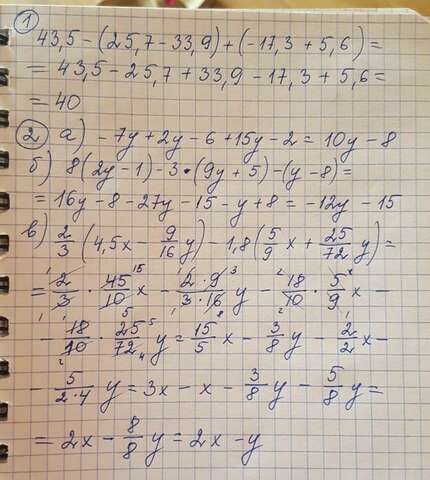 1
43,5 - (25,7 - 33,9) + (-17,3 + 5,6) =
= 43,5 - 25,7 + 33,9 - 17,3 + 5,6 =
= 40
2 а) -7y + 2y - 6 + 15y - 2 = 10y - 8
б) 8(2y - 1) - 3·(9y + 5) - (y - 8) =
= 16y - 8 - 27y - 15 - y + 8 = -12y - 15
в) 2/3 (4,5x - 9/16 y) - 1,8(5/9 x + 25/72 y) =
= 2/3 · 45/10 x - 2·9/3·16 y - 18/10 · 5/9 x -
- 18/10 · 25/72 y = 15/5 x - 3/8 y - 2/2 x -
- 5/2·4 y = 3x - x - 3/8 y - 5/8 y =
= 2x - 8/8 y = 2x - y